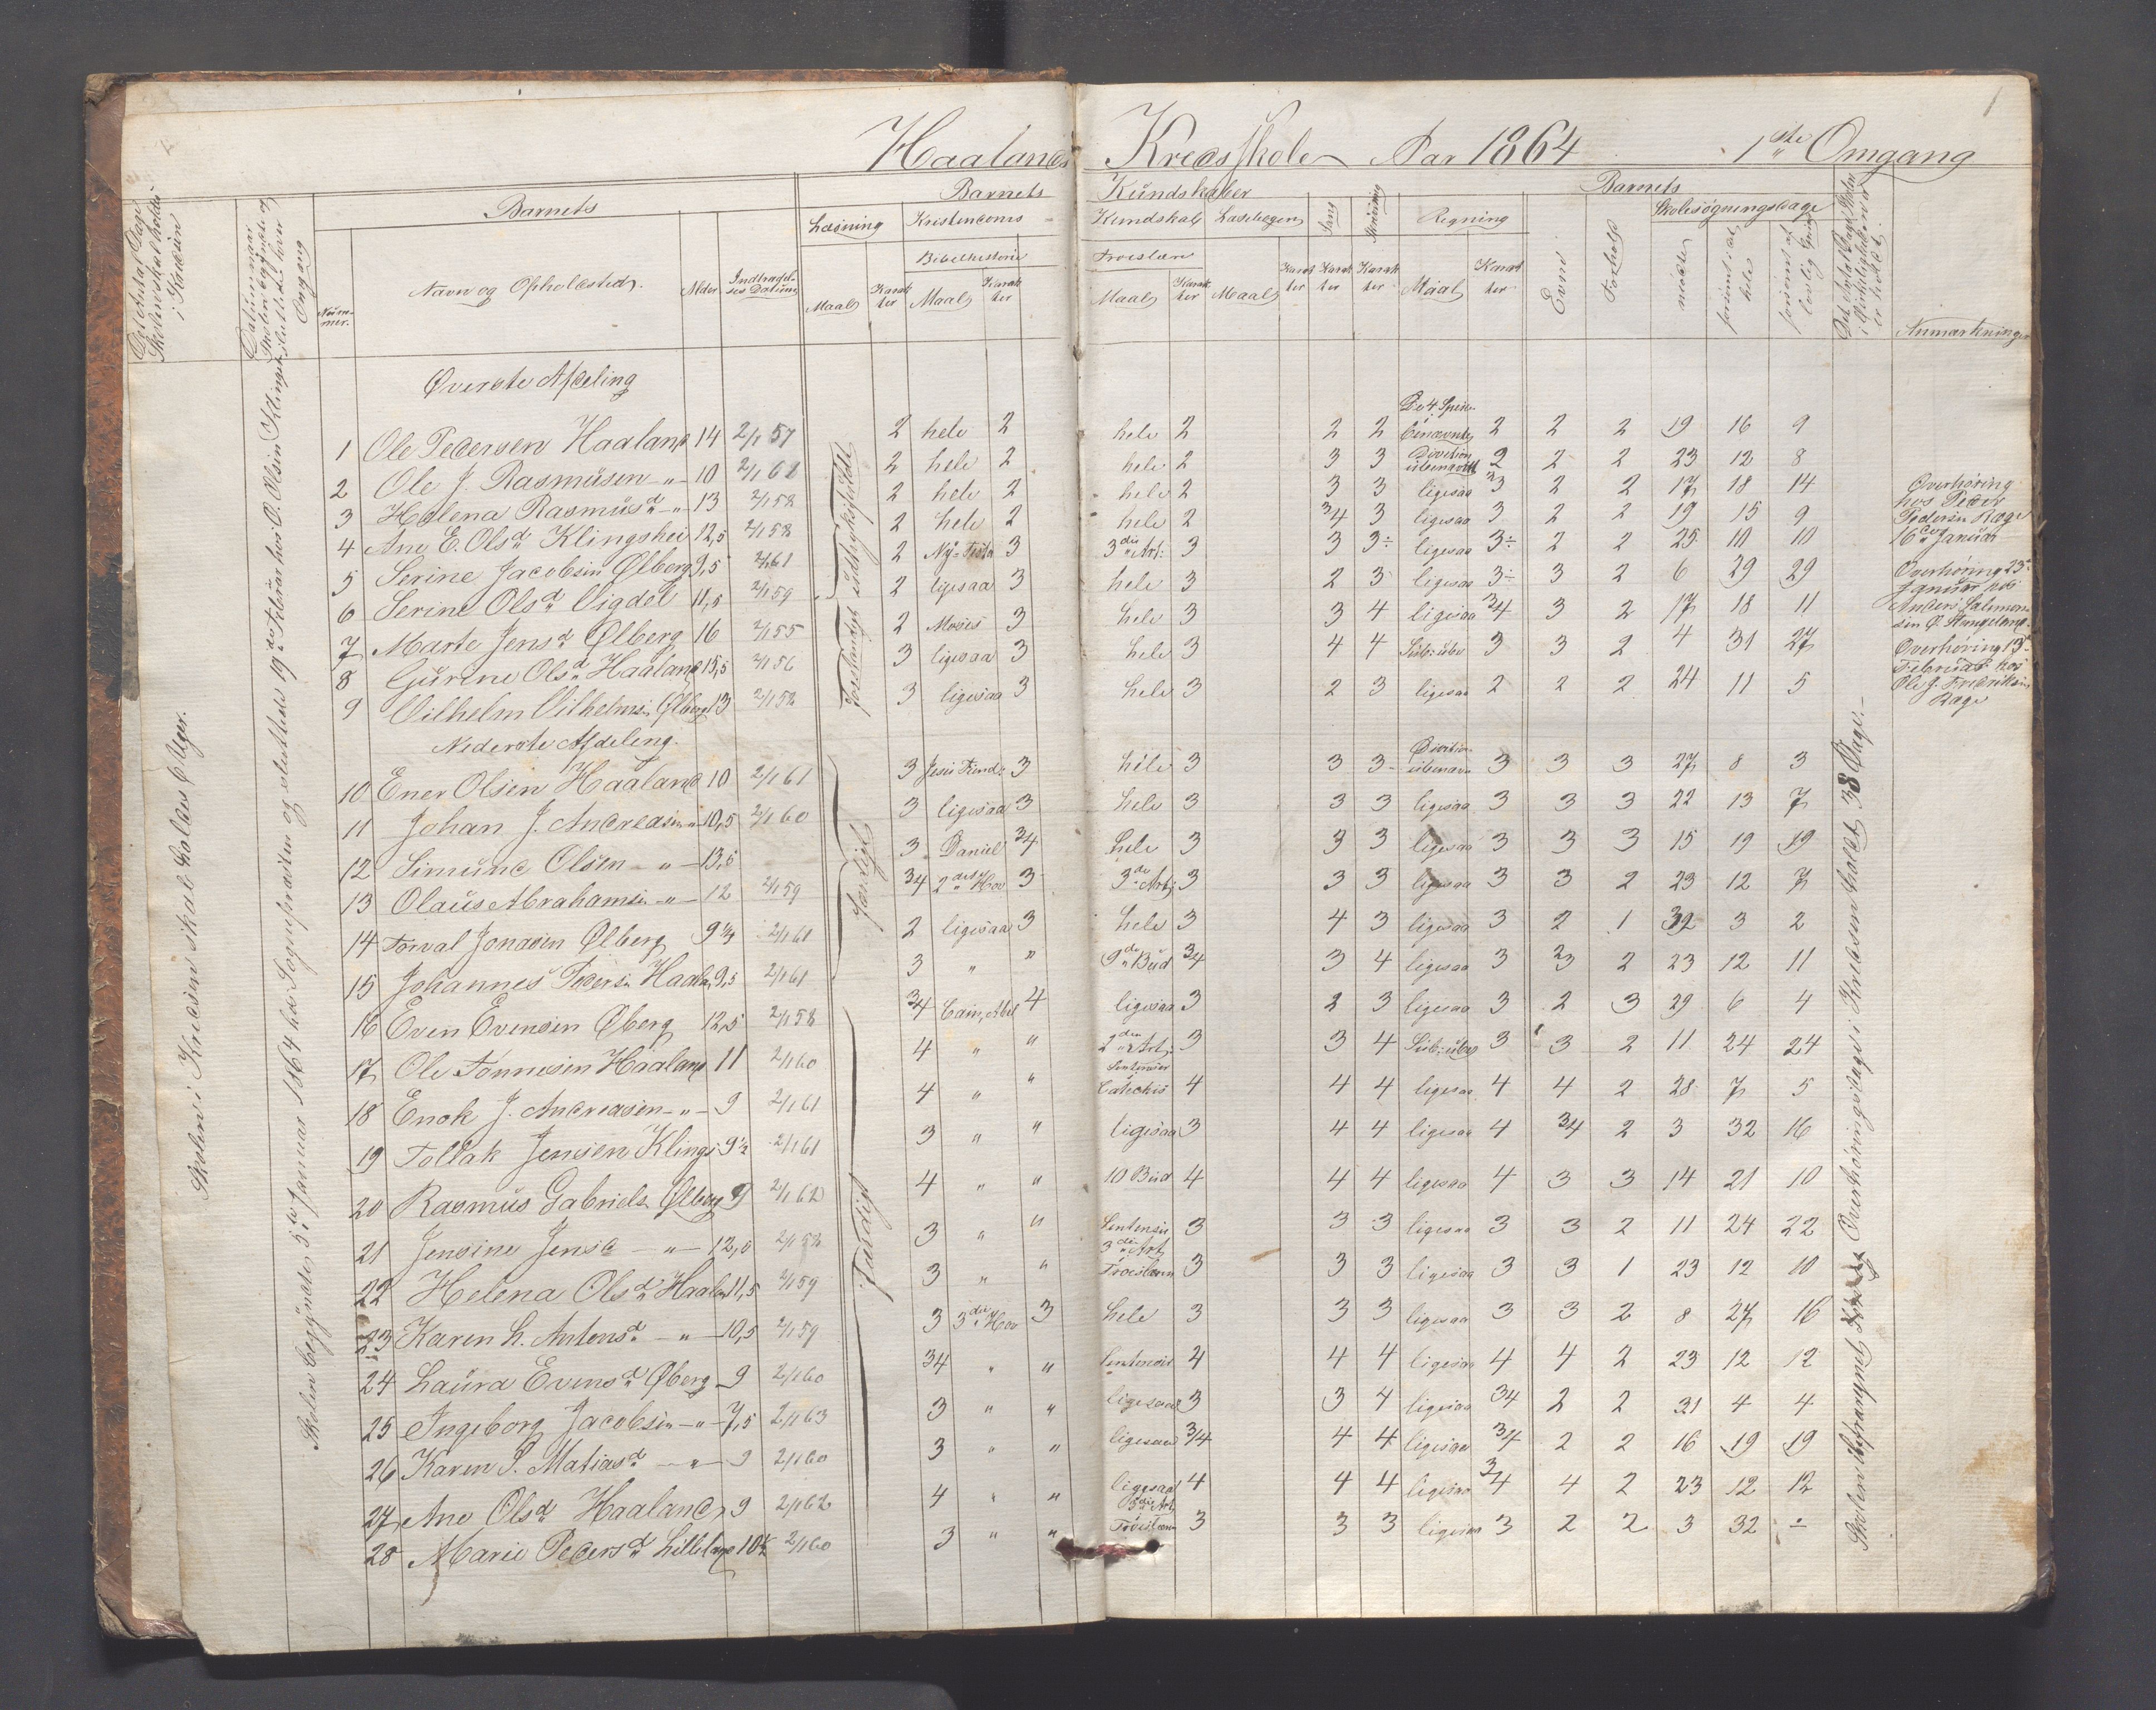 Haalands Kredsskole Aar 1864 1ste Omgang
1
Det Antal Dage Skolen skal holdes i Kredsen
Datum naar Skolen begyndte og sluttede hver Omgang
Barnets
Nummer.
Navn og Opholdsted.
Alder
Indtrædelses Datum
Barnets Kundskaber
Læsning
Maal
Karakter
Kristendoms Kundskab
Bibelhistorie
Maal
Karakter
Troeslære
Maal
Karakter
Læsebogen
Maal
Karakter
Sang
Karakter
Skrivning
Karakter
Regning
Maal
Karakter
Barnets
Evne
Forhold
Skolesøgningsdage
mødte
forsømt
Anmærkninger
Skolen i Kredsen skal holdes 6 Uger.
Skolen begyndte 5te Januar 1864 hos Sognepræsten og sluttede 19de Februar hos O. Olsen Klingshei
Forstandigt udtryksfuldt
færdigt
Øverste Afdeling
1 Ole Pedersen Haaland 14 2/1 57 2 hele 2 hele 2 2 2 De 4 Spec. i ubenævnte 2 2 2 19 16 9
2 Ole J. Rasmusen -"- 10 2/1 62 2 hele 2 hele 2 3 3 Division i ubenævnt 2 2 2 23 12 8
3 Helena Rasmusd -"- 13 2/1 58 2 hele 2 hele 2 3 3 ligesaa 3 2 2 17 18 14
4 Ane E. Olsd Klingshei 12,5 2/1 58 2 hele 2 hele 2 3/4 3 ligesaa 3 2 2 19 15 9
5 Serine Jacobsen Ølberg 9,5 2/1 61 2 Ny-Testa 3 3die Art: 3 3 3÷ ligesaa 3÷ 2 2 25 10 10
6 Serine Olsd Vigdel 11,5 2/1 59 2 ligesaa 3 hele 3 2 3 ligesaa 3÷ 3 2 6 29 29
7 Marte Jensd Ølberg 16 2/1 55 2 Moses 3 hele 3 3 4 ligesaa 3/4 3 2 17 18 11
8 Gurine Olsd Haaland 15,5 2/1 56 3 ligesaa 3 hele 3 4 4 Sub: ube 3 3 2 4 31 27
9 Vilhelm Vilhelmsen Ølberg 13 2/1 58 3 ligesaa 3 hele 3 2 3 ligesaa 2 2 2 24 11 5
Overhøring
hos Peder
Pedersen Rege
16de Januar
Overhøring 23de
Januar hos
Anders Salomon-
sen Ø. Stangeland.
Overhøring 13de
Februar hos
Ole J. Fredriksen
Rege
Nederste Afdeling.
10 Ener Olsen Haaland 10 2/1 61 3 Jesu Fend: 3 hele 3 3 3 Division ubenævn 3 3 3 27 8 3
11 Johan J. Andreasen -"- 10,5 2/1 60 3 ligesaa 3 hele 3 3 3 ligesaa 3 3 3 22 13 7
12 Simund Olsen -"- 13,5 3 Daniel 3/4 hele 3 3 3 ligesaa 3 3 3 15 19 19
13 Olaus Abrahamsen -"- 12 2/1 59 3/4 2det Hov 3 3die Art: 3 3 3 ligesaa 3 3 2 23 12 7
14 Torval Jonasen Ølberg 9 1/2 2/1 61 2 ligesaa 3 hele 3 4 3 ligesaa 3 2 1 32 3 2
15 Johannes Peders. Haalan 9,5 2/1 61 3 " " 9de Bud 3/4 3 4 ligesaa 3 2/3 2 23 12 11
16 Even Evensen Øberg 12,5 2/1 58 3/4 Cain, Abel 4 ligesaa 3 2 3 ligesaa 3 2 3 29 6 4
17 Ole Tønnesen Haaland 11 2/1 60 4 " " 2den Art: 3 3 4 Sub: ube 3 3 2 11 24 24
18 Enok J. Andreasen -"- 9 2/1 61 4 " " Sentenser Catekis 4 4 4 ligesaa 4 4 2 28 7 5
19 Tollak Jensen Klings 9 1/2 2/1 61 3 " " ligesaa 3 4 4 ligesaa 4 3/4 2 3 32 16
20 Rasmus Gabriels. Ølberg 9 2/1 62 4 " " 10 Bud 4 4 4 ligesaa 4 3 3 14 21 10
21 Jensine Jensd -"- 12,5 2/1 58 3 " " Sentenser 3 3 3 ligesaa 3 3 2 11 24 22
22 Helena Olsd Haalan 11,5 2/1 59 3 " " 3die Art Troeslæren 3 3 3 ligesaa 3 3 1 23 12 10
23 Karen L. Antonsd -"- 10,5 2/1 59 3 3die Hov 3 hele 3 3 3 ligesaa 3 3 2 8 27 16
24 Laura Evensd Øberg 9 2/1 60 3/4 " " Sentenser 4 4 4 ligesaa 4 4 2 23 12 12
25 Ingeborg Jacobsen -"- 7,5 2/1 63 3 " " ligesaa 3 3 4 ligesaa 3/4 2 2 31 4 4
26 Karen S. Matiasd -"- 9 2/1 60 3 " " ligesaa 3/4 4 4 ligesaa 3/4 2 2 16 19 19
27 Ane Olsd Haaland 9 2/1 62 4 " " ligesaa 4 4 4 ligesaa 3/4 4 2 23 12 12
28 Marie Pedersd Lilleland 10 1/2 2/1 60 3 " " 3die Art Troeslæren 3 3 3 ligesaa 3 2 2 3 32 ÷
Overhøringsdage i Kredsen holdt 38 Dage.